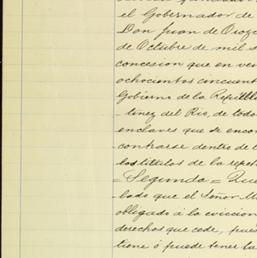 el Gobernador de
Don Juan de Orozc
de Octubre de mil s
concesion que en ven
ochocientos cincuent
Gobierno de la Republi
tinez del Rio, de todo
enclaves que se encon
contrarse dentro de l
los titulos de la repet
=Segunda= Que
lado que el Señor M
obligado á la eviccion
derechos que cede, pues
tiene ó puede tener la